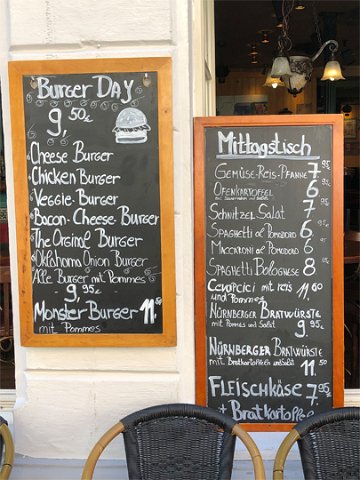 Burger Day
9,50€
Cheese Burger
Chicken Burger
Veggie-Burger
Bacon-Cheese Burger
The Orginal Burger
Oklahoma Onion Burger
Alle Burger mit Pommes
9,95€
Monster Burger 11,50
mit Pommes
Mittagstisch
Gemüse-Reis-Pfanne 7,
Ofenkartoffel 6,
Schnitzel Salat 7,
Spaghetti al Pomodoro 6,
Maccaroni al Pomodoro 6,
Spaghetti Bolognese 8
Cevapcici mit Reis 11,50
und Pommes
Nürnberger Bratwürste
mit Pommes und Salat 9,95
Nürnberger Bratwürste
mit Bratkartoffeln und Salat 11,50
Fleischkäse 7,95
+ Bratkartoffel